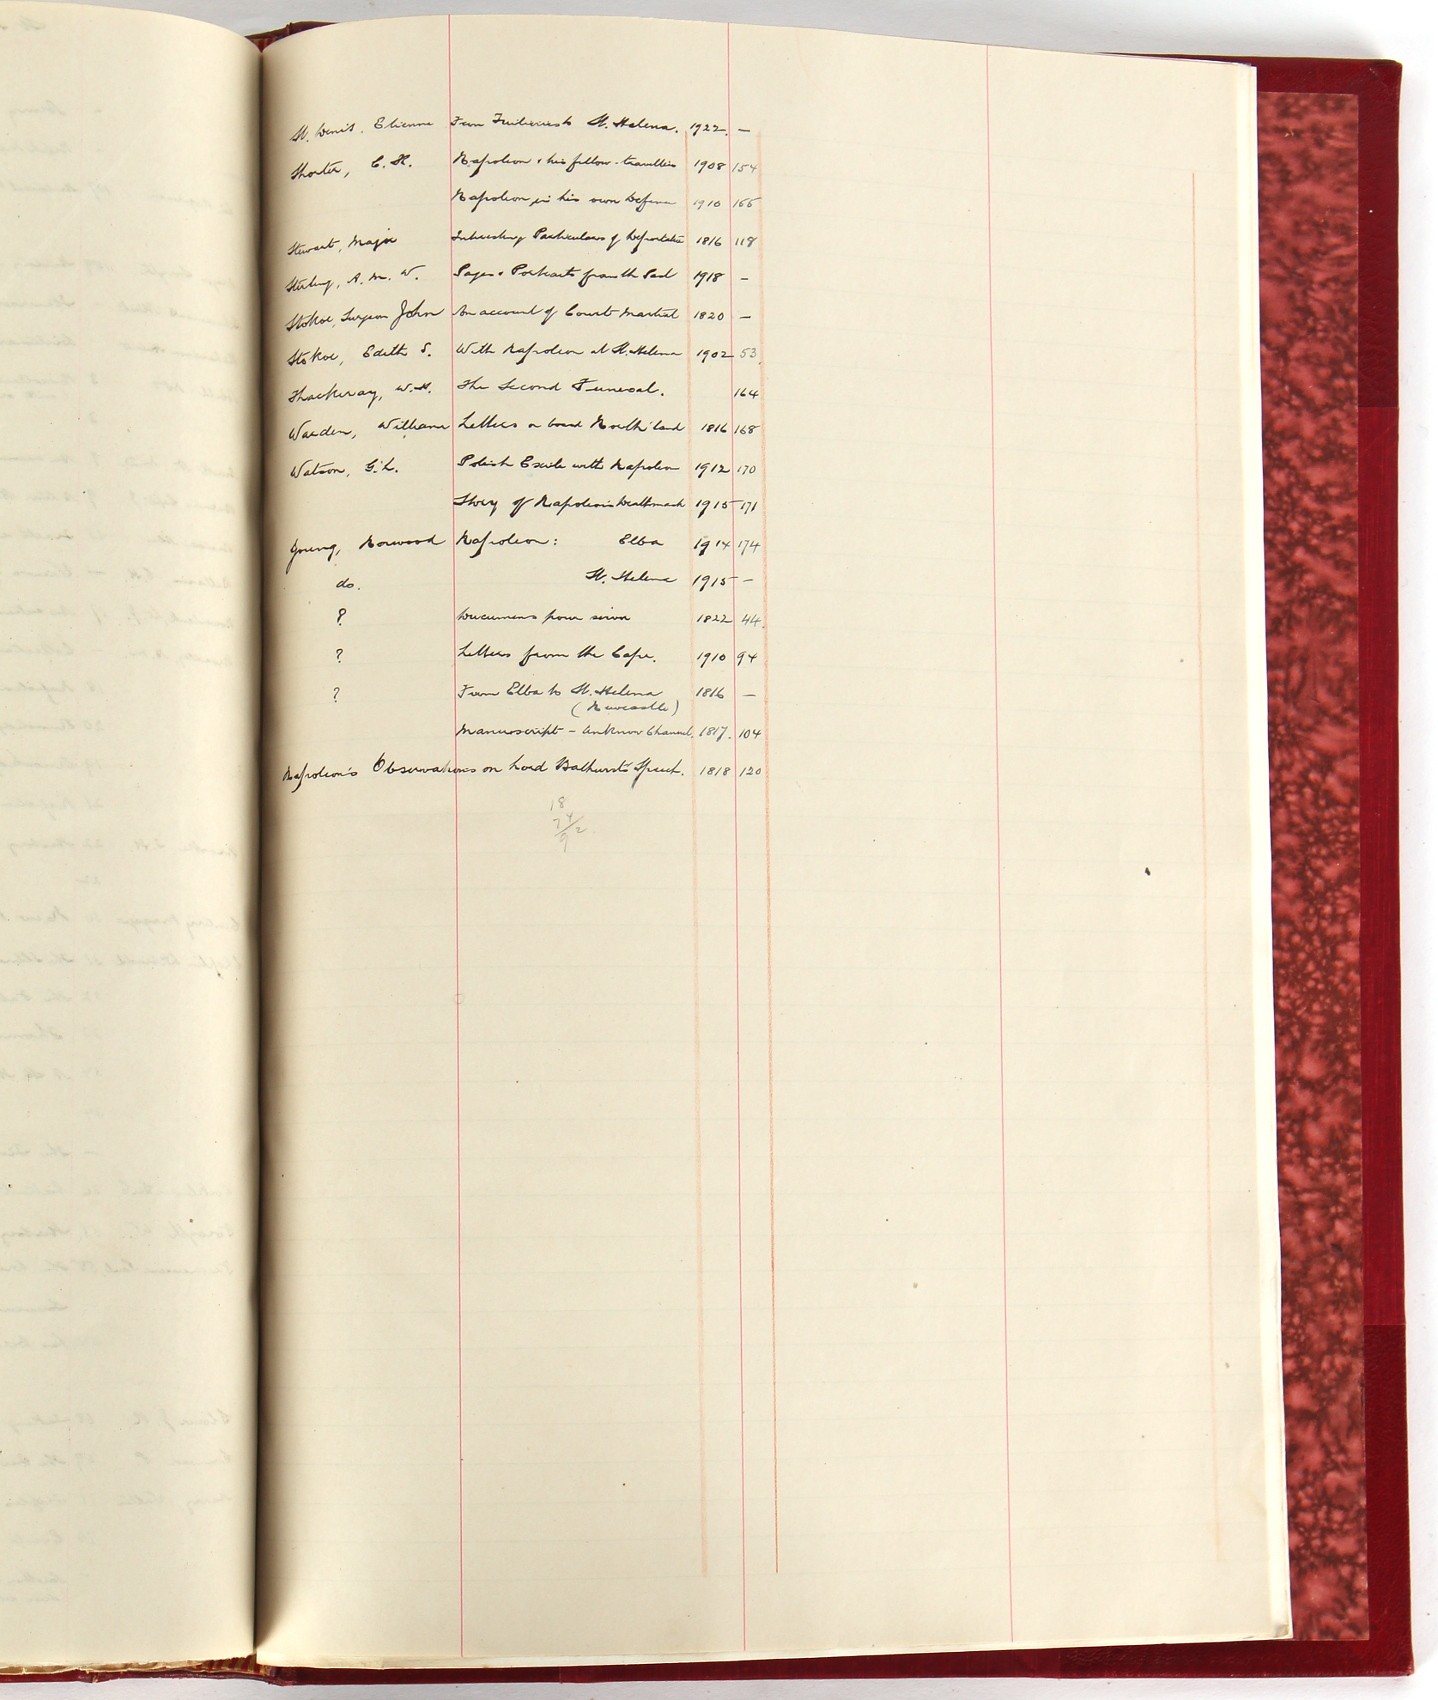 St. Denis, Etienne From Tuileries to St. Helena. 1922. —
Shorter, C. K. Napoleon & his fellow-travellers 1908 154
Napoleon in his own Defence 1910 155
Stewart, Major Interesting Particulars of Deportation 1816 118
Sterling, A. M. W. Pages & Portraits from the Past 1918 —
Stokoe, Surgeon John An account of Court Martial 1820 —
Stokoe, Edith S. With Napoleon at St. Helena 1902 53.
Thackeray, W. M. The Second Funeral. 164
Warden, William Letters on board Northl'land 1816 168
Watson, G. L. Polish Exile with Napoleon 1912 170
Story of Napoleon's Deathmask 1915 171
Young, Norwood Napoleon: Elba 1914 174
do. St. Helena 1915 —
? Documens pour servir 1822 44.
? Letters from the Cape. 1910 94
? From Elba to St. Helena 1816 —
(Newcastle)
Manuscript – Unknow Channel. 1817. 104
Napoleon's Observations on Lord Bathurst's Speech. 1818 120
18
74
92